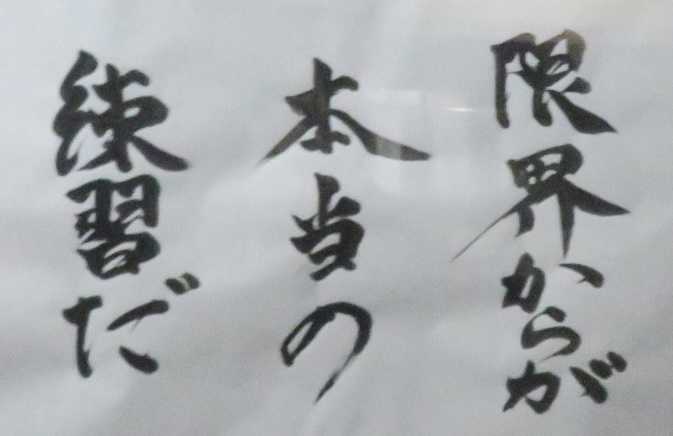 限界からが
本当の
練習だ